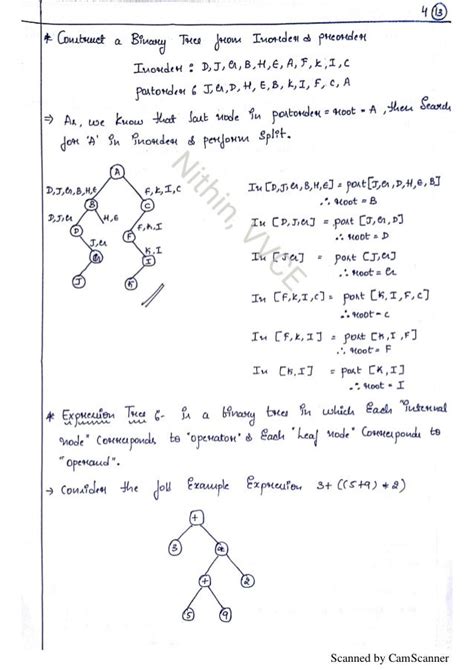 4 (13)
* Construct a Binary Tree from Inorder & preorder
Inorder : D, J, G, B, H, E, A, F, K, I, C
postorder : J, G, D, H, E, B, K, I, F, C, A
⇒ As, we know that last node in postorder = root = A, then Search
for 'A' in inorder & perform split.
A
D, J, G, B, H, E
F, K, I, C
B
C
D, J, G
H, E
F, K, I
D
F
J, G
K, I
G
I
J
K
In [D, J, G, B, H, E] = post [J, G, D, H, E, B]
∴ root = B
In [D, J, G] = post [J, G, D]
∴ root = D
In [J G] = post [J, G]
∴ root = G
In [F, K, I, C] = post [K, I, F, C]
∴ root = C
In [F, K, I] = post [K, I, F]
∴ root = F
In [K, I] = post [K, I]
∴ root = I
Nithin, VVCE
* Expression Tree :- is a binary tree in which Each "internal
node" Corresponds to "operator" & Each "Leaf node" Corresponds to
"operand".
→ Consider the foll Example Expression 3+ ((5+9) * 2)
+
3
*
+
2
5
9
Scanned by CamScanner